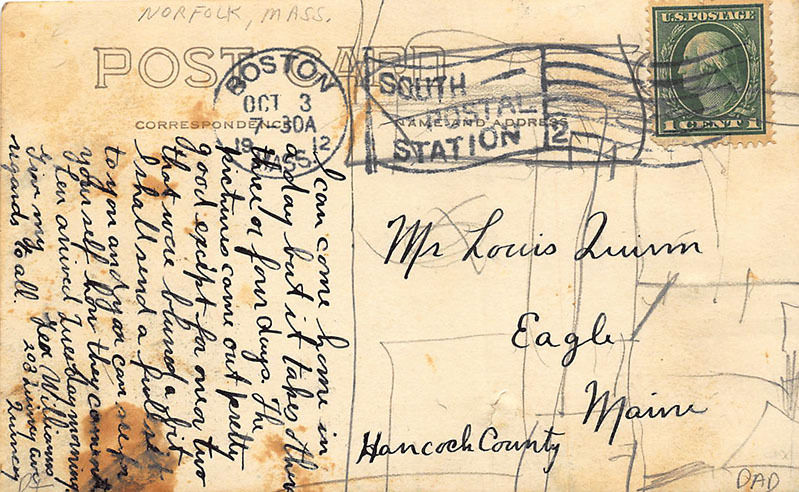 NORFOLK, MASS.
POST CARD
CORRESPONDENCE
NAME AND ADDRESS
BOSTON
OCT 3
7-30A
1912
MASS.
SOUTH
POSTAL
STATION
2
U.S. POSTAGE
1 CENT 1
I can come home in
a day but it takes
three or four days. The
pictures came out pretty
good except for one or two
that were blurred a bit
I shall send a full set
to you and you can see for
yourself how they came out
arrived Tuesday morning.
Give my
regards to all.
Geo. Williams
203 Quincy Ave
Quincy
Mr Louis Quinn
Eagle
Maine
Hancock County
DAD